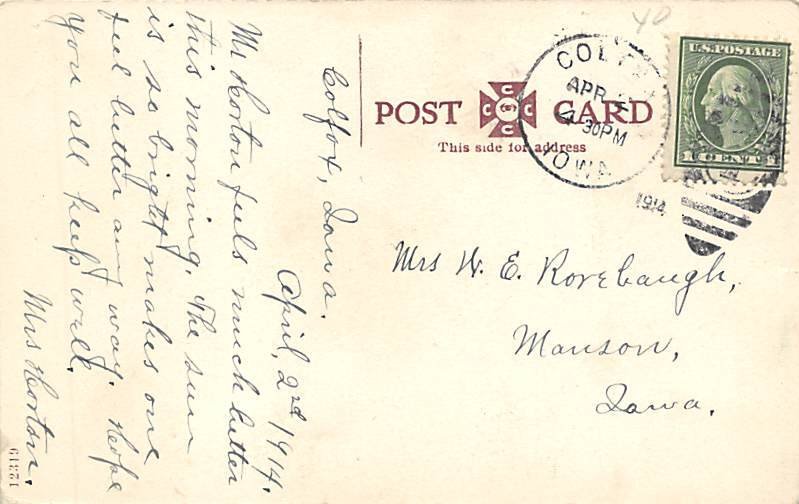 40
Colfox, Iowa.
April, 2nd 1914.
Mr Horton feels much better
this morning. The sun
is so bright makes one
feel better any way. Hope
you all keep well.
Mrs Horton.
POST CARD
This side for address
APR 2
4 30PM
IOWA
1914
U.S. POSTAGE
1 CENT 1
Mrs W. E. Rorebaugh,
Manson,
Iowa.